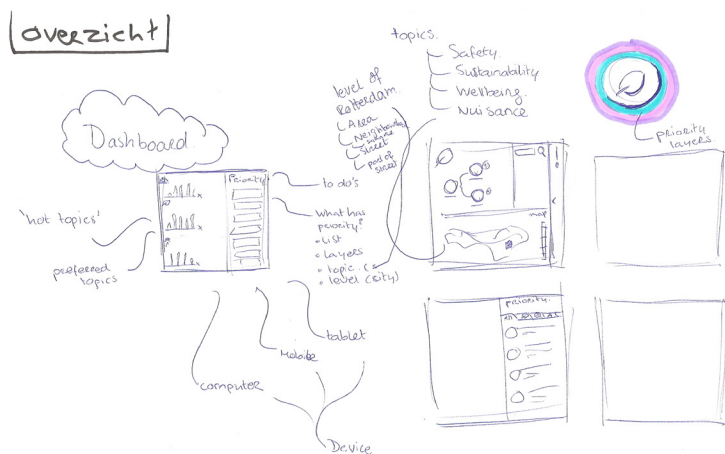 overzicht
Dashboard
'hot topics'
preferred
topics
Priority
to do's
What has
priority?
• List
• Layers
• topic (s
• level (city)
computer
Mobile
tablet
Device
level of
Rotterdam
Area
Neighbourhood
Street
part of
street
topics.
Safety.
Sustainability
Wellbeing.
Nuisance
map
priority.
All
priority
layers